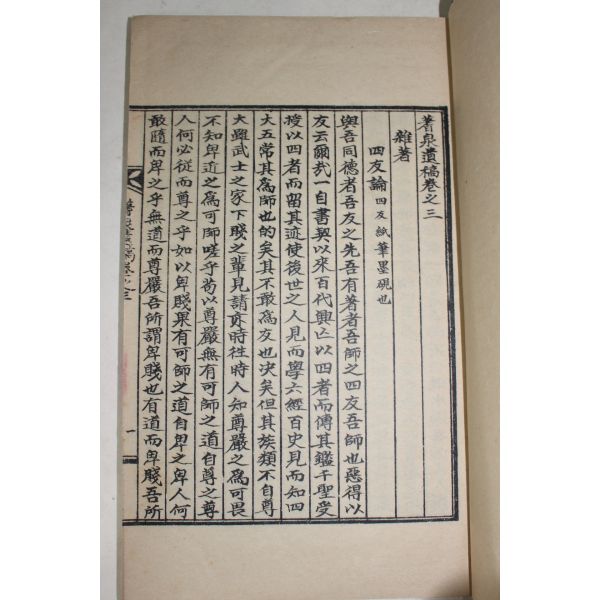 蓍泉遺稿卷之三
雜著
四友論 四友紙筆墨硯也
與吾同德者吾友之先吾有著者吾師之四友吾師也惡得以
友云爾哉一自書契以來百代興亡以四者而傳其鑑千聖受
授以四者而留其迹使後世之人見而學六經百史見而知四
大五常其爲師也的矣其不敢爲友也決矣但其族類不自尊
大雖武士之家下賤之輩見請來時徃時人知尊嚴之爲可畏
不知卑近之爲可師嗟乎苟以尊嚴無有可師之道自尊之尊
人何必從而尊之乎如以卑賤果有可師之道自卑之卑人何
敢隨而卑之乎無道而尊嚴吾所謂卑賤也有道而卑賤吾所
一